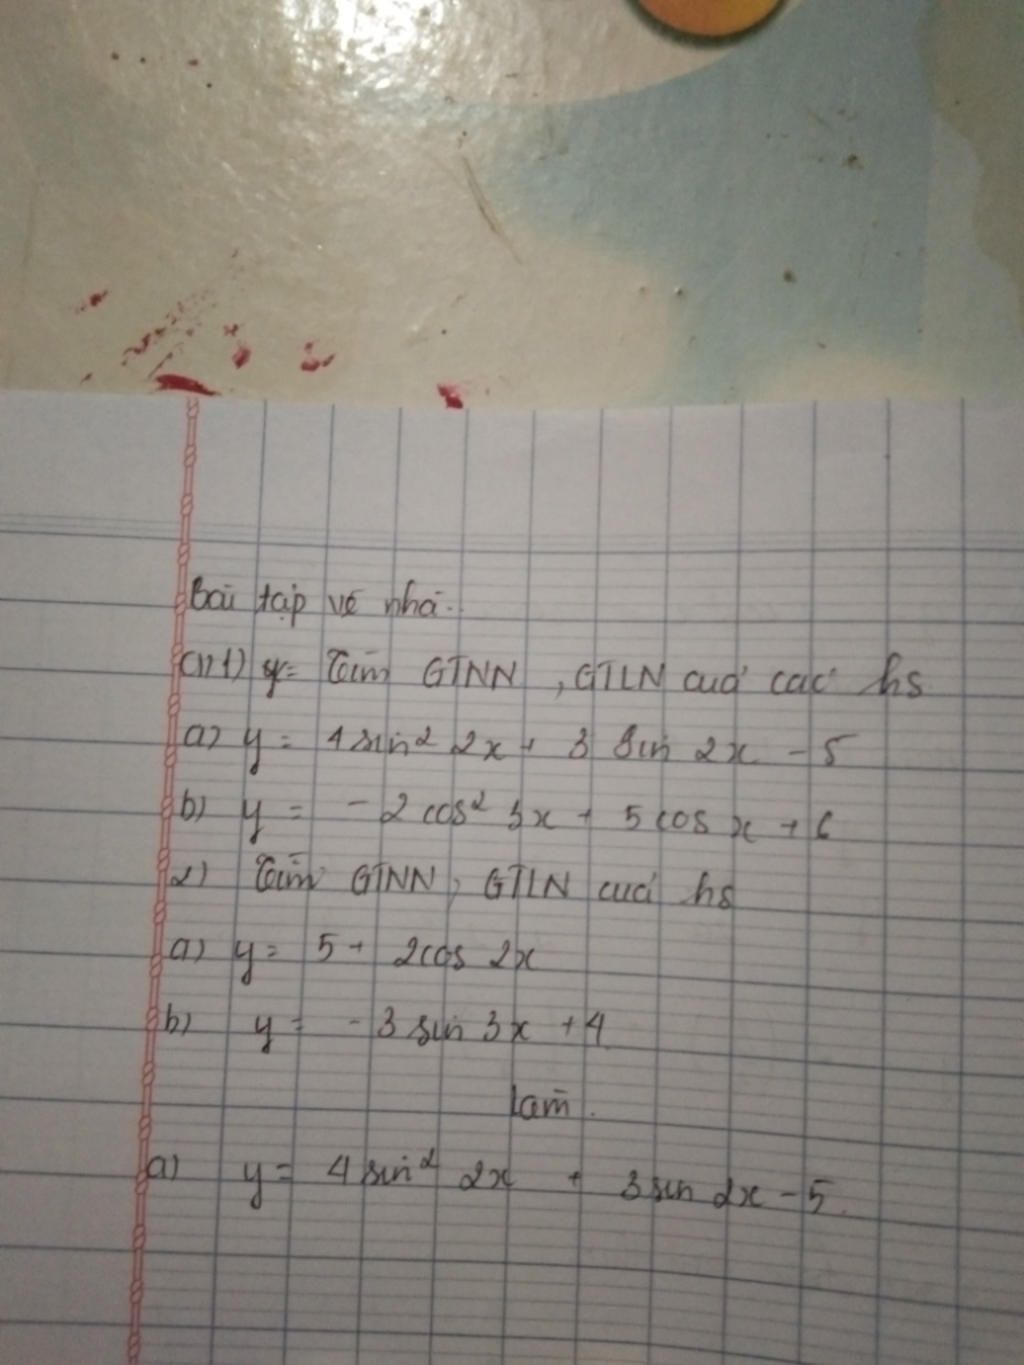 Bài tập về nhà.
1) y= Tìm GTNN, GTLN của các hs
a) y = 4 sin² 2x + 3 sin 2x - 5
b) y = - 2 cos² 3x + 5 cos x + 6
2) Tìm GTNN, GTLN của hs
a) y = 5 + 2cos 2x
b) y = - 3 sin 3x + 4
làm.
a) y = 4 sin² 2x + 3 sin 2x - 5.